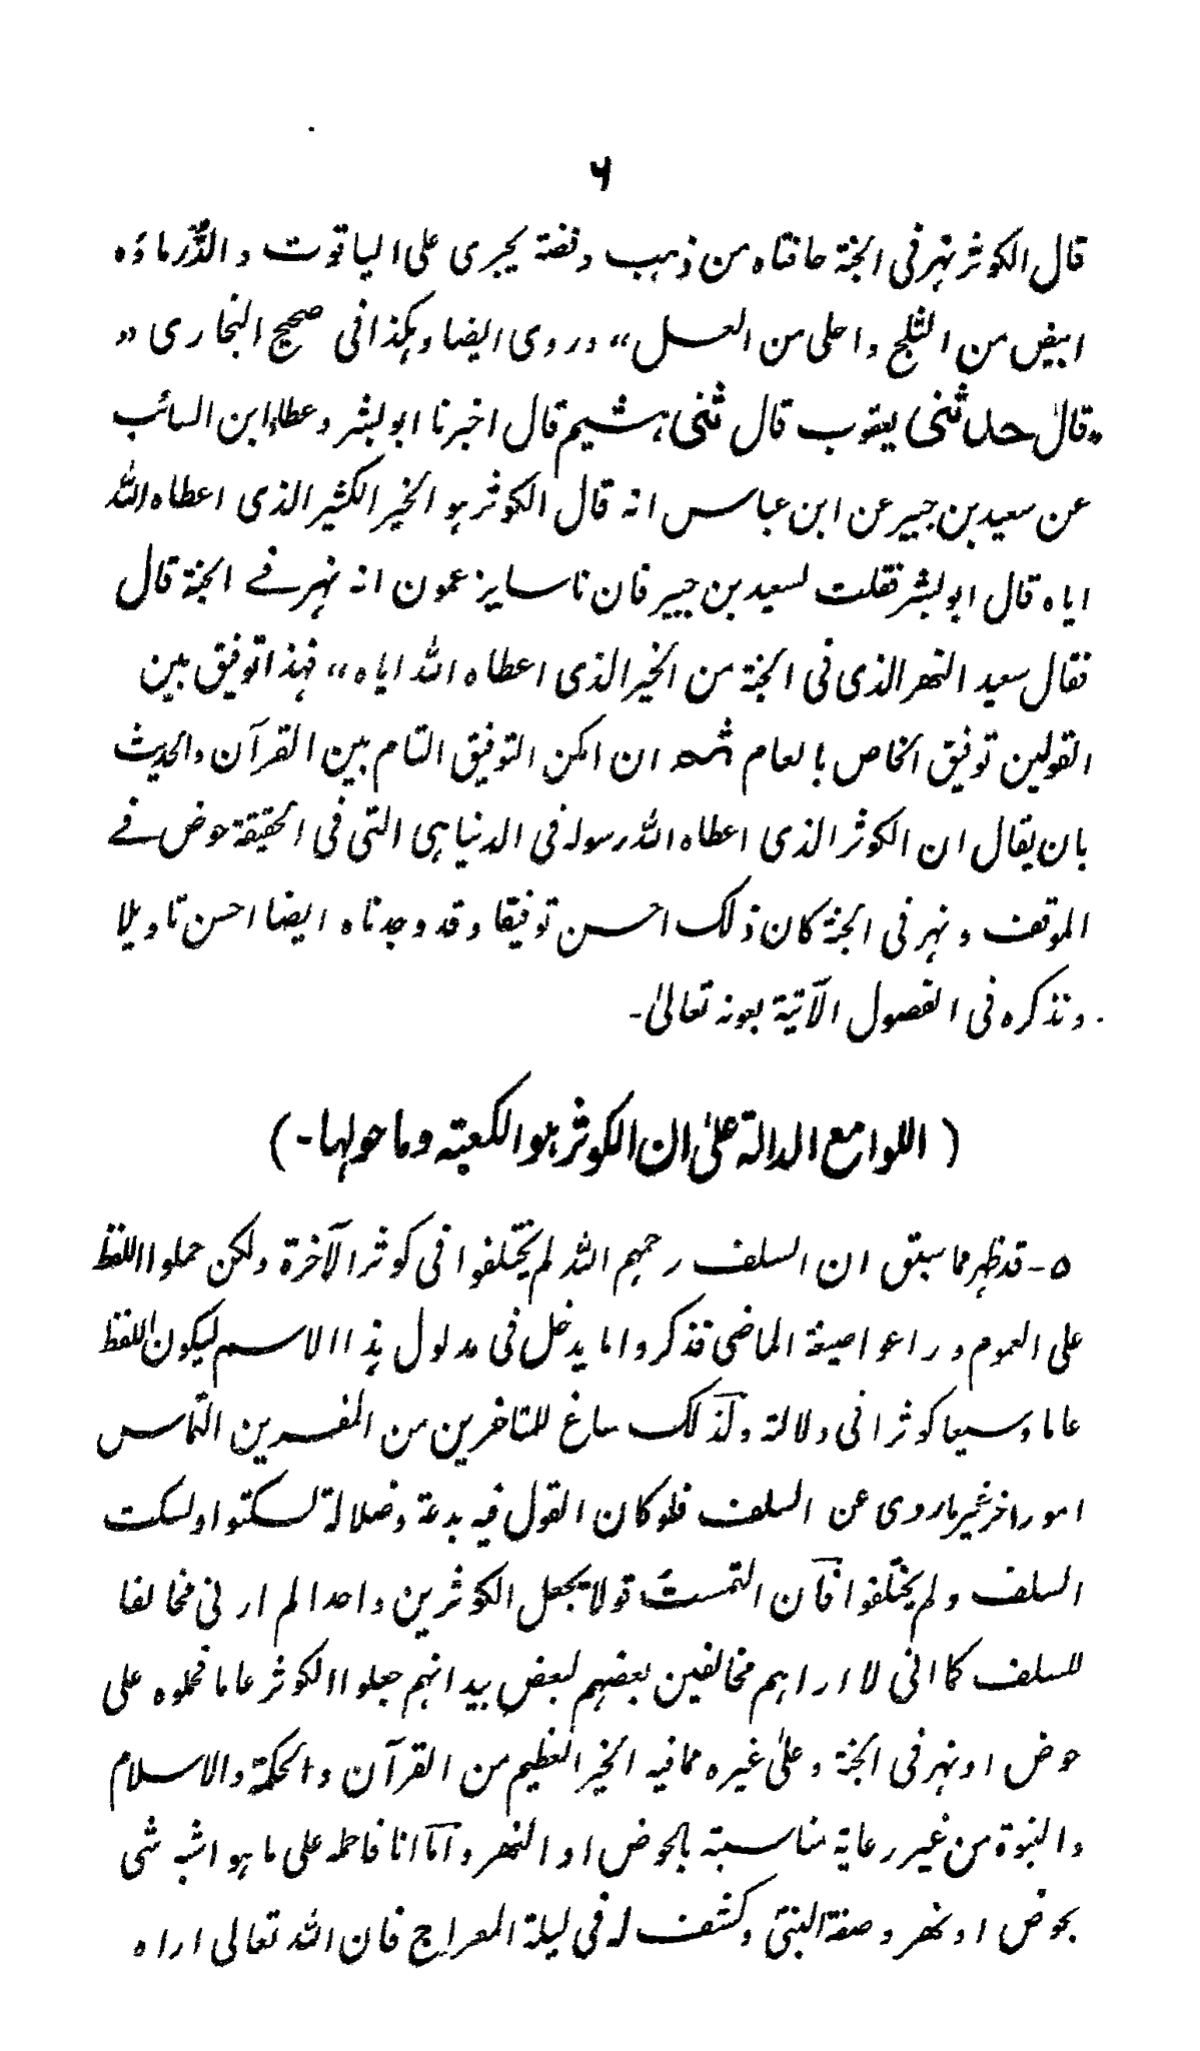 ۶
قال الکوثر نہر فی الجنۃ حافتاہ من ذہب وفضۃ یجری علی الیاقوت والدُّرماؤہ
ابیض من الثلج واحلی من العسل،، وروی ایضا وہکذا فی صحیح البخاری ”
”قال حدثنی یعقوب قال ثنی ہشیم قال اخبرنا ابو بشر وعطاء ابن السائب
عن سعید بن جبیر عن ابن عباس انہ قال الکوثر ہو الخیر الکثیر الذی اعطاہ اللہ
ایاہ قال ابو بشر فقلت لسعید بن جبیر فان ناسا یزعمون انہ نہر فے الجنۃ قال
فقال سعید النھر الذی فی الجنۃ من الخیر الذی اعطاہ اللہ ایاہ،، فہذا توفیق بین
القولین توفیق الخاص بالعام ثمہ ان امکن التوفیق التام بین القرآن والحدیث
بان یقال ان الکوثر الذی اعطاہ اللہ رسولہ فی الدنیا ہی التی فی الحقیقۃ حوض فے
الموقف ونہر فی الجنۃ کان ذلک احسن توفیقا وقد وجدناہ ایضا احسن تاویلا
ونذکرہ فی الفصول الآتیۃ بعونہ تعالیٰ۔
(اللوامع الدالۃ علیٰ ان الکوثر ہو الکعبتہ وما حولہا۔)
۵۔ قد ظہر مما سبق ان السلف رحمہم اللہ لم یختلفوا فی کوثر الآخرۃ ولکن حملوا اللفظ
علی العموم وراعوا صیغۃ الماضی فذکروا ما یدخل فی مدلول ہذا الاسم لیکون اللفظ
عاما وسیعا کوثرا فی دلالۃ ولذلک ساغ للمتاخرین من المفسرین التماس
امور اخر غیر ماروی عن السلف فلو کان القول فیہ بدعۃ وضلالۃ لسکتوا ولسکت
السلف ولم یختلفوا فان التمستُ قولا یجعل الکوثرین واحدا لم ارنی مخالفا
للسلف کما انی لا اراہم مخالفین بعضہم لبعض بید انہم جعلوا الکوثر عاما فحملوہ علی
حوض او نہر فی الجنۃ وعلیٰ غیرہ مما فیہ الخیر العظیم من القرآن والحکمۃ والاسلام
والنبوۃ من غیر رعایۃ مناسبۃ بالحوض او النھر واما انا فاحملہ علی ما ہو اشبہ شی
بحوض او نھر وصفۃ النبیؐ وکشف لہ فی لیلۃ المعراج فان اللہ تعالی اراہ